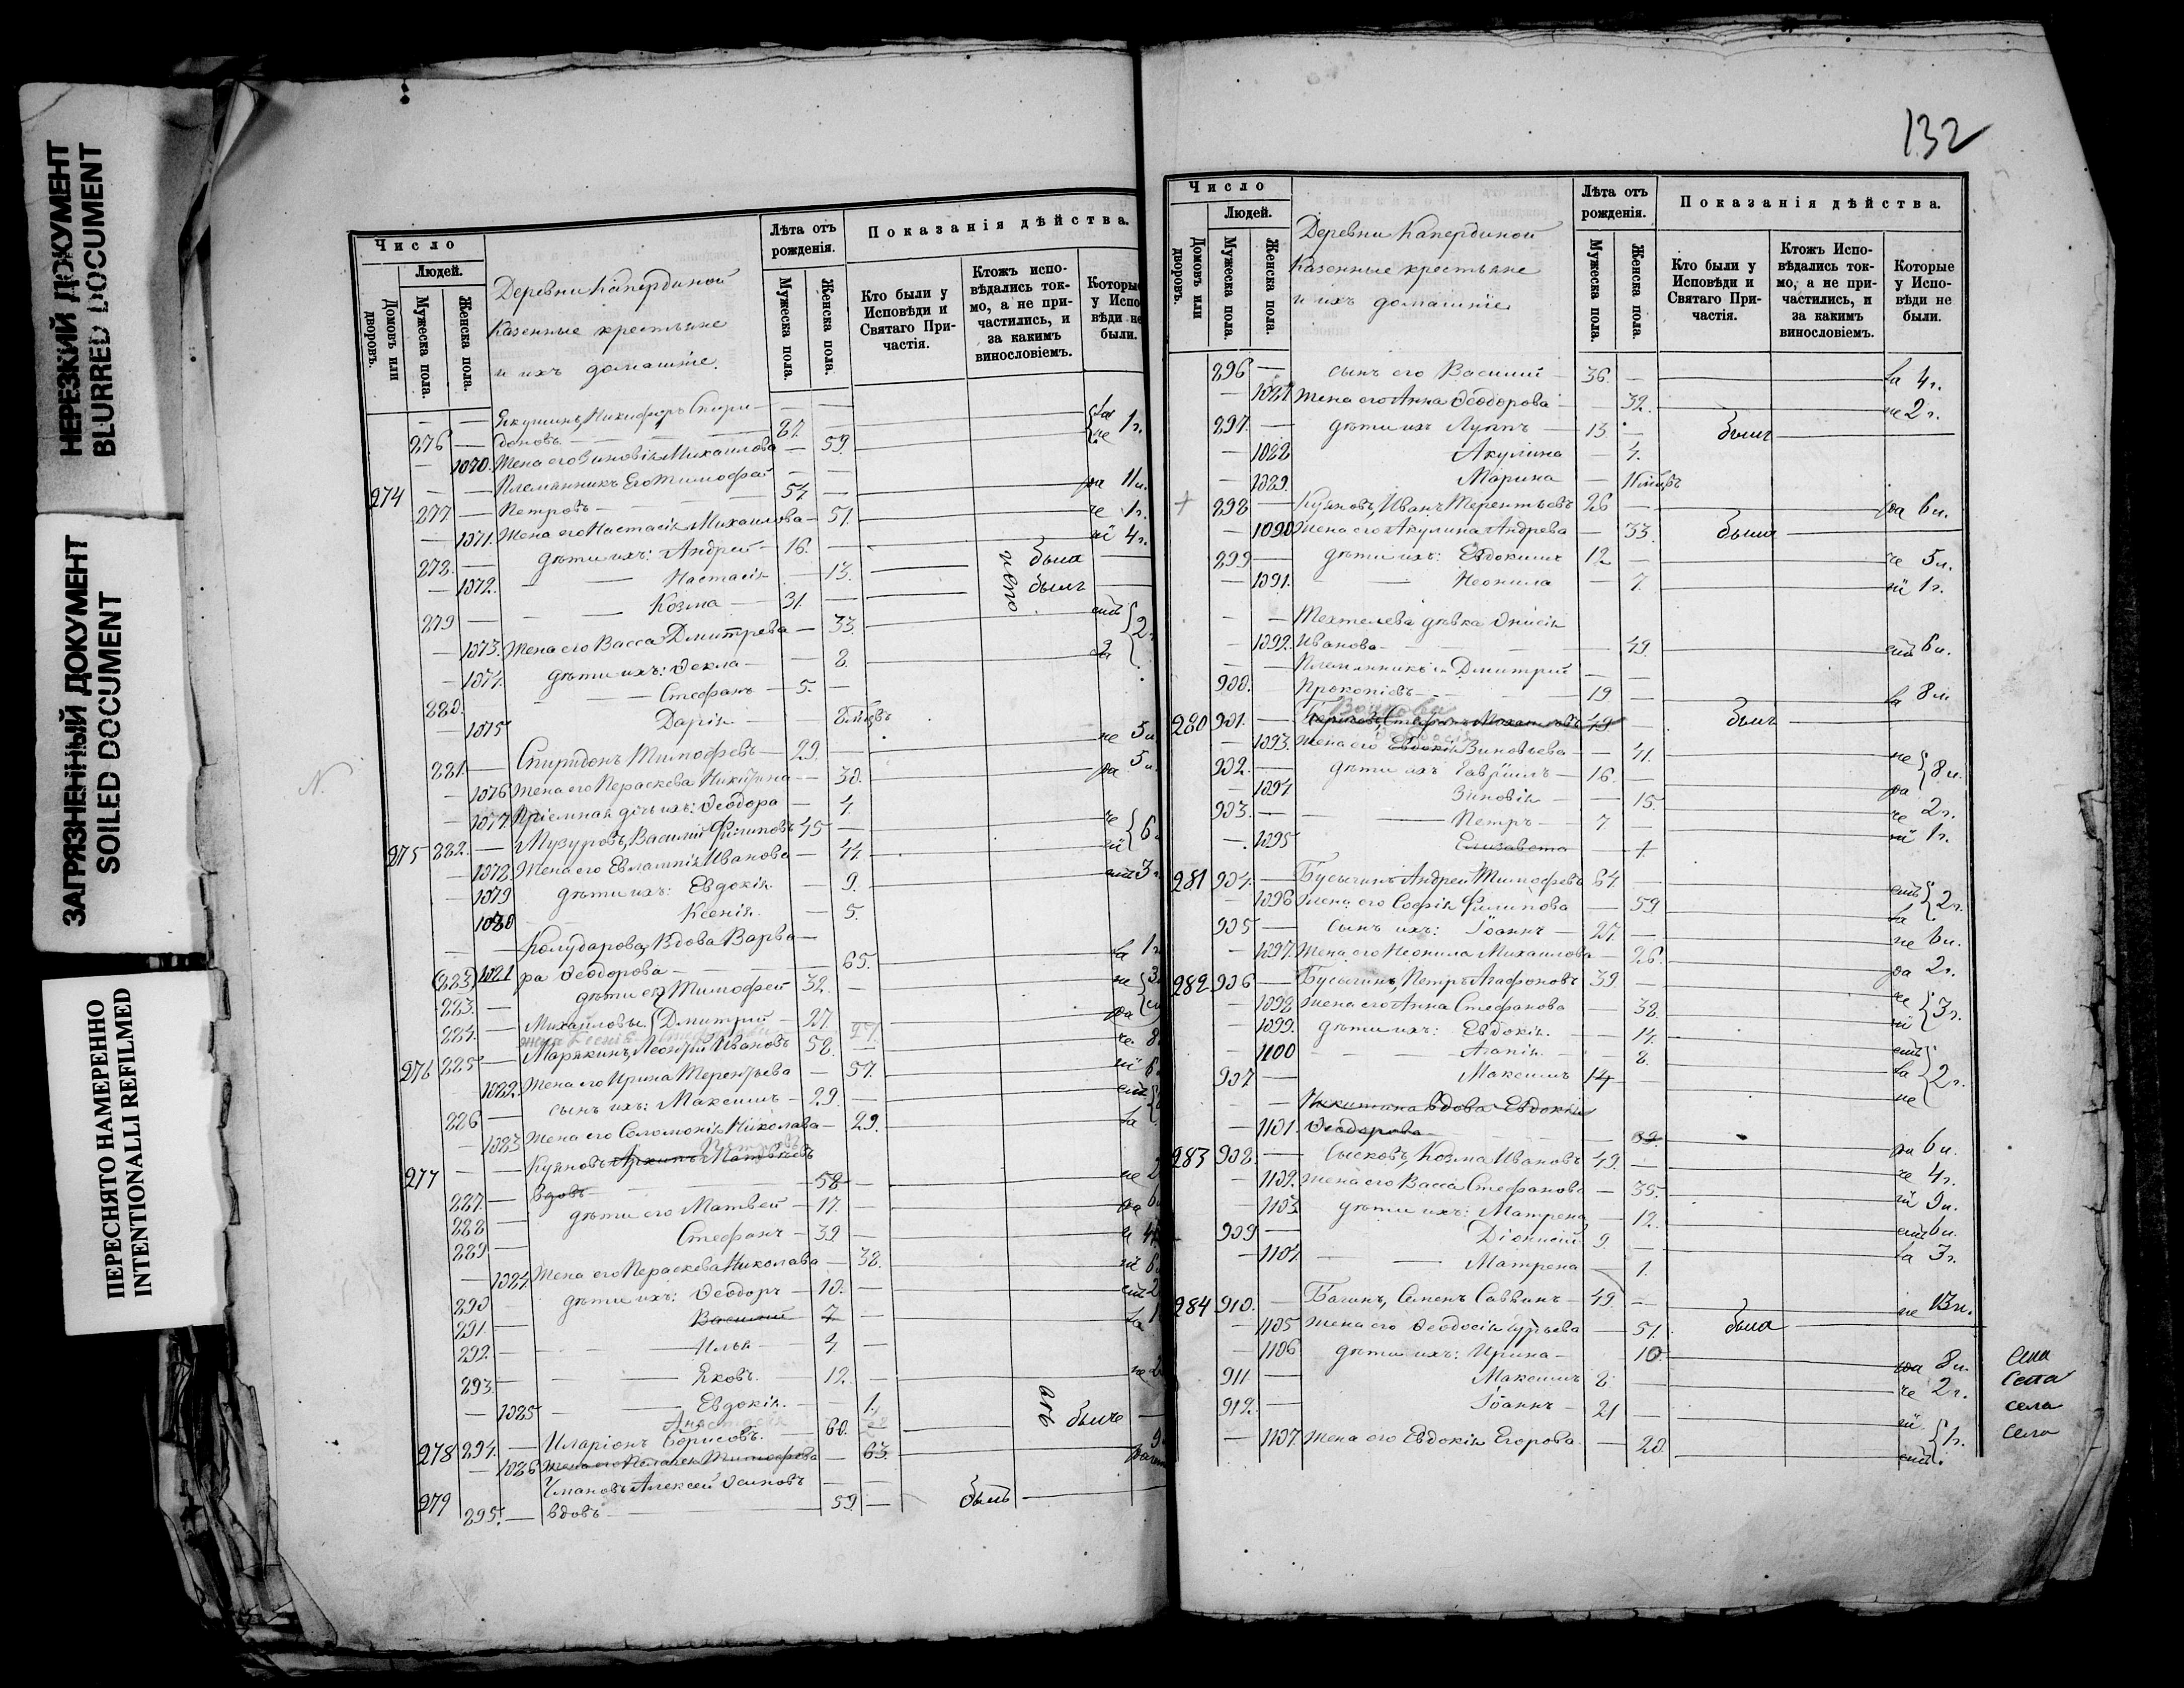 НЕРЕЗКИЙ ДОКУМЕНТ
BLURRED DOCUMENT
ЗАГРЯЗНЕННЫЙ ДОКУМЕНТ
SOILED DOCUMENT
ПЕРЕСНЯТО НАМЕРЕННО
INTENTIONALLI REFILMED
N.
Число
Людей.
Домовъ или дворовъ.
Мужеска пола
Женска пола.
Деревни Капердиной
Казенные крестьяне
и ихъ домашніе.
Лѣта отъ рожденія.
Мужеска пола.
Женска пола.
Показанія дѣйства.
Кто были у Исповѣди и Святаго Причастія.
Ктожъ исповѣдались токмо, а не причастились, и за какимъ винословіемъ.
Которые у Испо-
вѣди не
были.
Якушинъ, Никифоръ Спири-
276 — доновъ 87. 1 г.
— 1070. Жена его Зиновія Михаилова — 59.
274 — — Племянникъ Его Тимофей
277 — Петровъ 54 — 11 и.
— 1071. Жена его Настасія Михаилова — 51. 1 г.
278. — дѣти ихъ: Андрей — 16. — 4 г.
— 1072. Настасія — 13. была
279 — Козма — 31. — былъ
— 1073. Жена его Васса Дмитрева — 33. 2
— 1074. дѣти ихъ: Ѳекла — 8.
280. Стефанъ — 5. —
— 1075 Дарія — 8 мѣсц
281. — Спиридонъ Тимофеевъ — 29. 5 и
— 1076 Жена его Параскева Никитина — 30. 5 и.
— 1077. Пріемная дочь ихъ: Ѳеодора — 4.
275 882. — Музуровъ, Василій Филиповъ 45 — 6
— 1078. Жена его Евлампія Иванова — 44.
— 1079 дѣти ихъ: Евдокія — 9. 3 г
1080 Ксенія. — 5.
— — Колударова, Вдова Варва-
883 1081 ра Ѳеодорова — 65. 1 г
883. — дѣти ея Тимофей 32. — 3
884. — Михайловы. Дмитрій — 27.
276 885 — Марякинъ, Леонтій Ивановъ 58. — 8
1082. Жена его Ирина Терентьева — 57. 6
886 — сынъ ихъ: Максимъ — 29. —
— 1083 Жена его Соломонія Николаева — 29.
277 — — Куяновъ Архипъ Матвѣевъ
887. — вдовъ 58 —
888 — дѣти его Матвей — 17. — 6
889 — Стефанъ — 39 — 4
— 1084. Жена его Параскева Николаева — 38. 6
290 — дѣти ихъ: Ѳеодоръ — 10. — 2
291. — Василій 7 — 1
292. — Илья — 4 —
293. — Яковъ. — 12. — 2
— 1085 Евдокія. — 1.
278 294. — Иларіонъ Борисовъ. — 60. былъ
— 1086 Жена его Пелагея Тимофеева — 63. 9
279 — Чмановъ Алексей Осиповъ
295. — вдовъ 59. — былъ
132
Число
Людей.
Домовъ или дворовъ.
Мужеска пола.
Женска пола.
Деревни Капердиной
Казенные крестьяне
и ихъ домашніе
Лѣта отъ рожденія.
Мужеска пола.
Женска пола.
Показанія дѣйства.
Кто были у Исповѣди и Святаго Причастія.
Ктожъ Исповѣдались токмо, а не причастились, и за какимъ винословіемъ.
Которые у Исповѣди не были.
896 — сынъ его Василий — 36. — 4 г.
— 1087 Жена его Анна Ѳеодорова — 32. 2 г.
897. — дѣти ихъ Луппъ — 13. — былъ
— 1088 Акулина — 4.
— 1089. Марина — 11 мѣсцъ
+ 898 — Куяновъ, Иванъ Терентьевъ 26 — 6 и.
— 1090 Жена его Акулина Андрева — 33. была
899 — дѣти ихъ: Евдокимъ 12 — 5 и.
— 1091. Неонила — 7. 1 г.
— — Техтелева дѣвка Онисія
— 1092. Иванова — 49. 6 и.
— — Племянникъ ея Дмитрий
900. — Прокопіевъ — 19 — 8 и
Войнова
280 901. — 49 — былъ
— 1093. Жена его Евдокія Зиновьева — 41.
902. — дѣти ихъ Гавріилъ — 16. — 8 и.
— 1094 Зиновія — 15.
903. — Петръ — 7 — 2 г.
— 1095 Елизавета — 1. 1 г.
281 904. — Бусыгинъ Андрей Тимофеевъ 64. —
— 1096 Жена его Софія Филипова — 59 2 г.
905 — сынъ ихъ: Іоаннъ — 27. —
— 1097. Жена его Неонила Михаилова — 26. 6 и.
282 906 — Бусыгинъ, Петръ Агафоновъ 39 — 2 г.
— 1098 Жена его Анна Стефанова — 38. 3 г.
— 1099. дѣти ихъ: Евдокія. — 14.
— 1100 Агапія. — 8.
907 — Максимъ 14 2 г.
— — Никитина вдова Евдокія
— 1101. Ѳеодорова
283 908. — Сысковъ, Козма Ивановъ 49. — 6 и.
— 1102. Жена его Васса Стефанова — 35. 4 г.
— 1103. дѣти ихъ: Матрена — 12. 9 и.
909 — Діонисій 9. — 6 и.
— 1104. Матрена — 1. 3 г.
284 910. — Багинъ, Семенъ Саввинъ — 49. — 13 и.
— 1105 Жена его Ѳеодосія Гурьева — 51. была
— 1106 дѣти ихъ: Ирина — 10. 8 и. села
911 — Максимъ 8. 2 г. села
912. — Іоаннъ — 21 — села
— 1107. Жена его Евдокія Егорова. — 20. 1 г. села